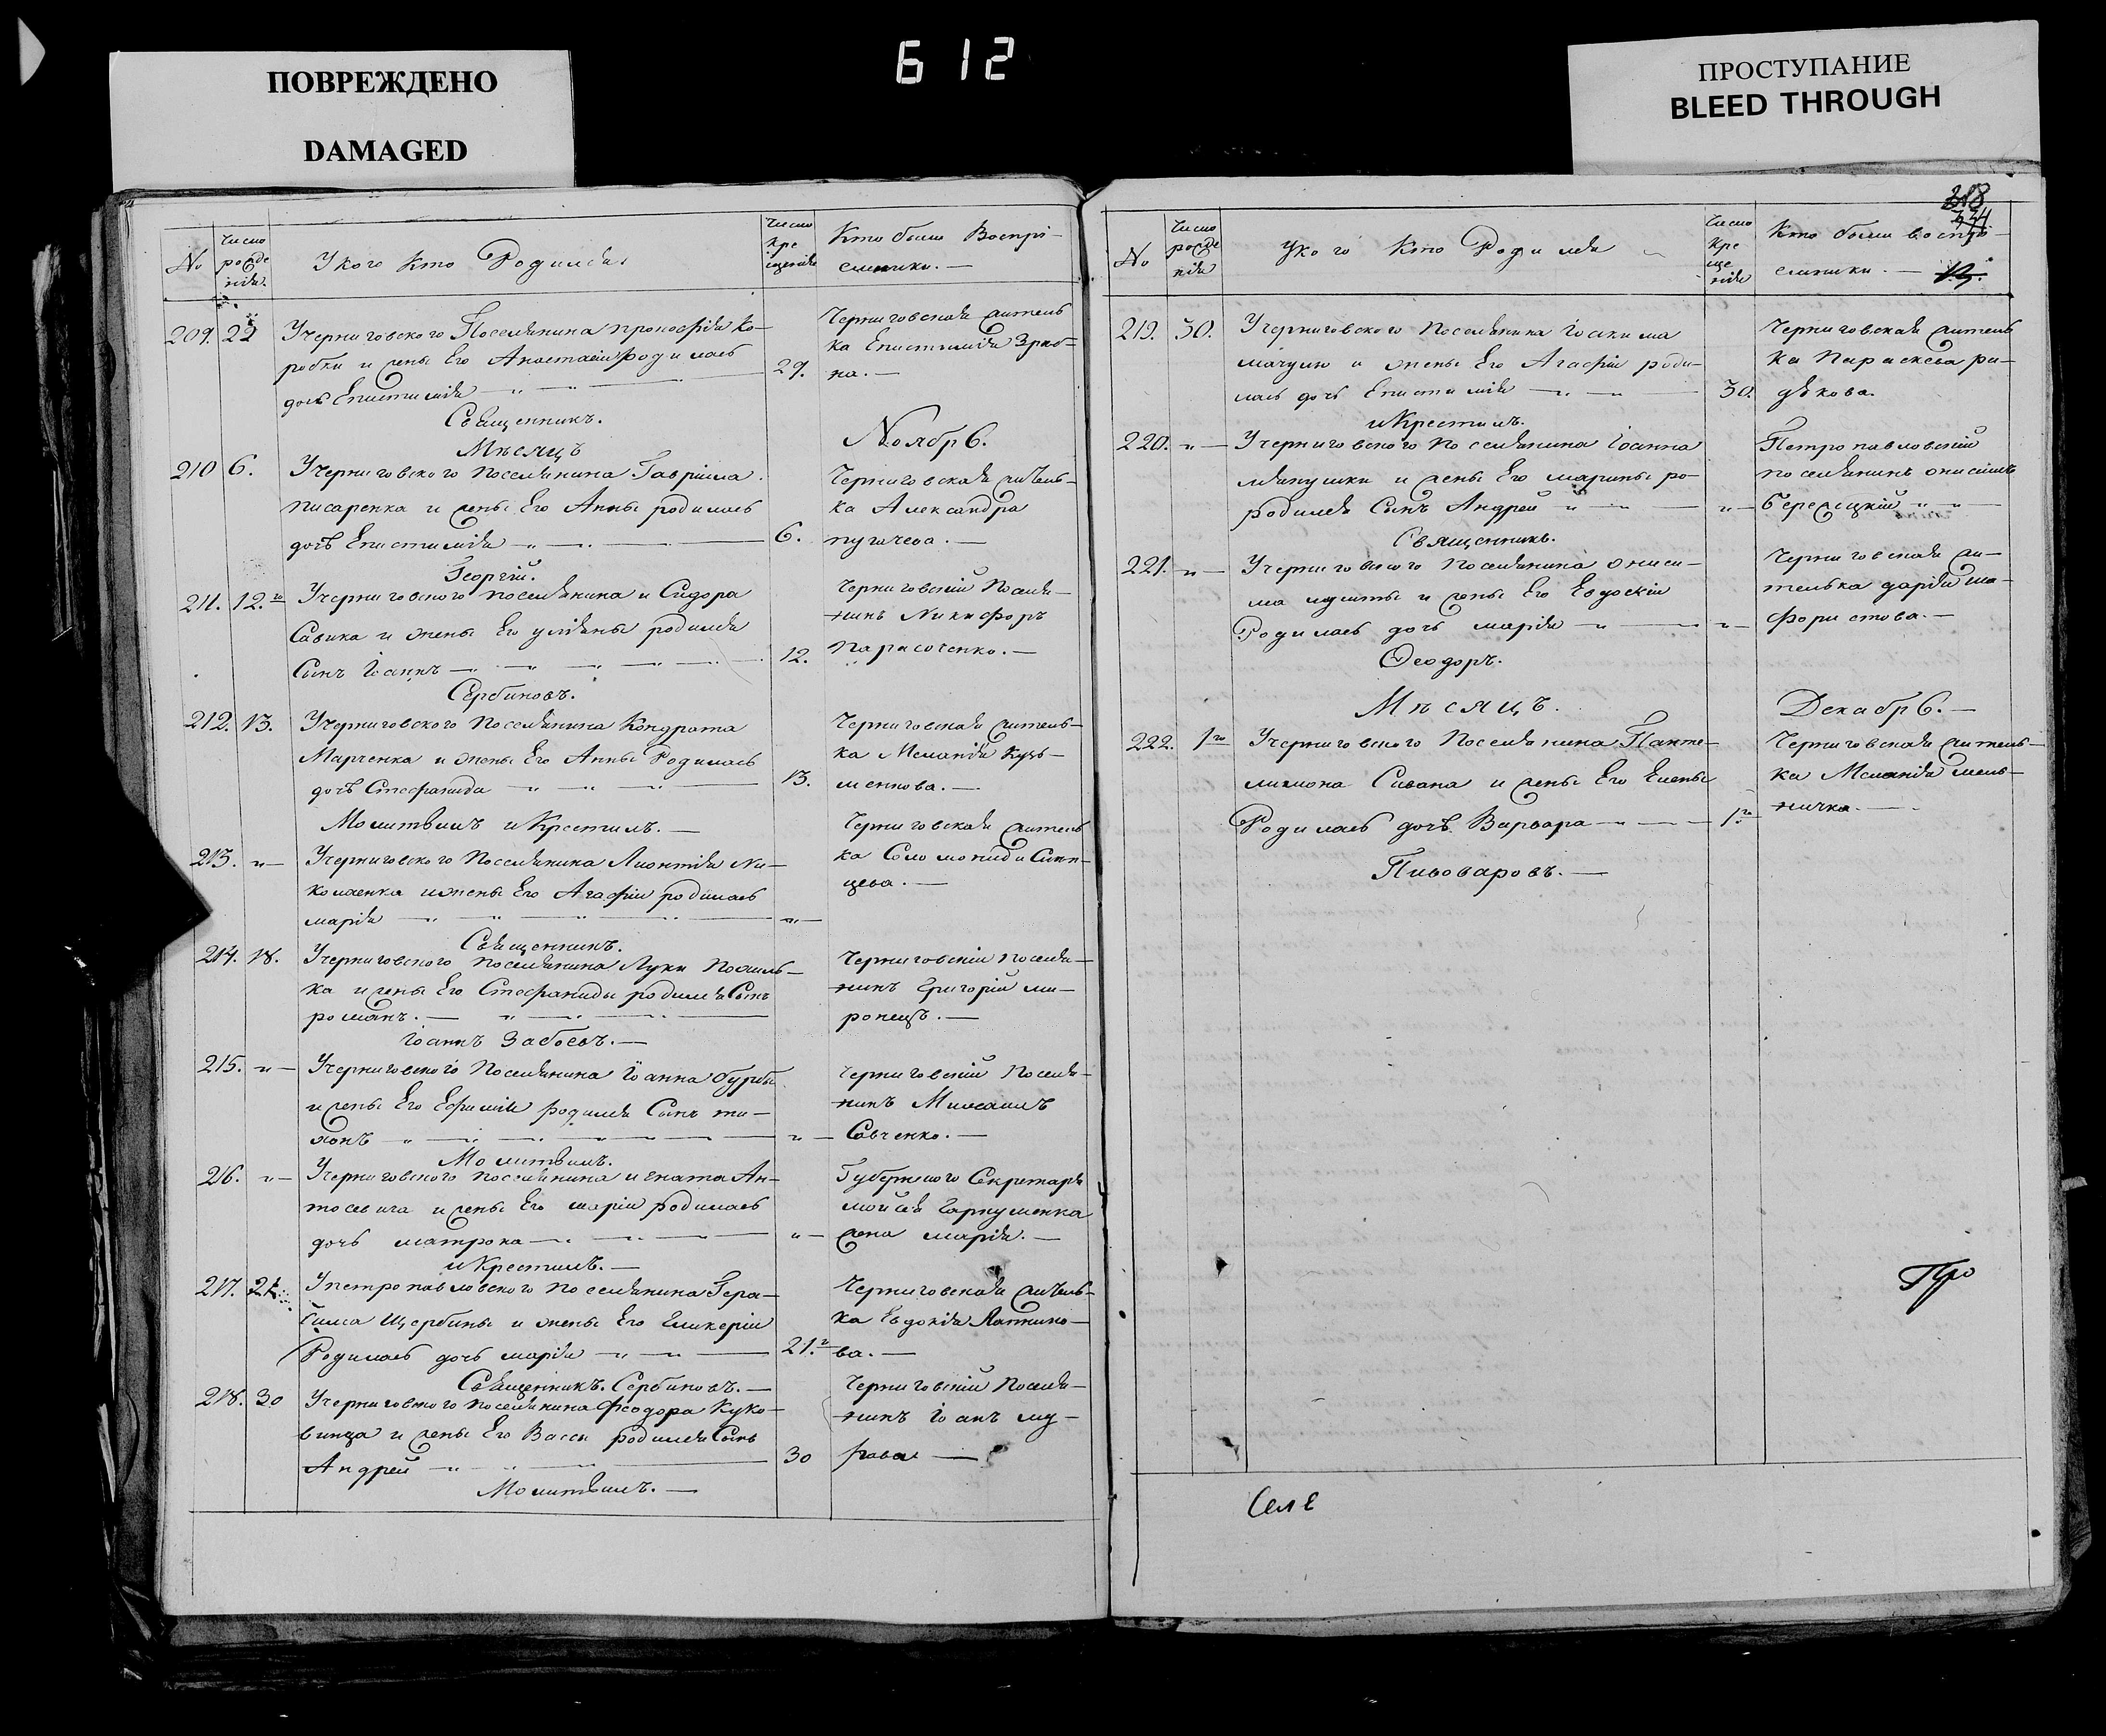 ПОВРЕЖДЕНО
DAMAGED
612
ПРОСТУПАНИЕ
BLEED THROUGH
№
Число рожде нія.
У кого кто Родился
Число кре щенія
Кто были Воспрі-
емники. —
209. 22 Учерниговского Поселянина Ко-
робки и жены Его Анастасіи родилась
дочь Епистимія
29.
Черниговская жител
ка Епистимія
на. —
Священникъ.
Мѣсяцъ
Ноябрь.
210 6. Учерниговского поселянина Гавріила
писаренка и жены Его Анны родилась
дочь Епистимія
6.
Черниговская житель-
ка Александра
пугачева. —
Георгій.
211. 12.го Учерниговского поселянина и Сидора
Савика и жены Его уліяны родился
Сынъ Іоаннъ
12.
Черниговскій Поселя-
нинъ Никифоръ
Парасоченко. —
Сербиновъ.
212. 13. Учерниговского Поселянина Кондрата
Марченка и жены Его Анны Родилась
дочь Стефанида
13.
Черниговская житель-
ка Меланія Кузь-
менкова. —
Молитвилъ и Крестилъ. —
213. „— Учерниговского Поселянина Лионтія Ни-
колаенка и жены Его Агафіи родилась
марія
„—
Черниговская жител
ка
цева. —
Священникъ.
214. 18. Учерниговского поселянина Луки
ка и жены Его Стефаниды родился Сынъ
романъ. —
Черниговскій поселя-
нинъ Григорій ми-
ронецъ. —
Іоаннъ Забоевъ. —
215. „— Учерниговского Поселянина Іоанна бурбы
и жены Его Ефиміи родился Сынъ ти-
хонъ
„—
Черниговскій Поселя-
нинъ Михаилъ
Савченко. —
Молитвилъ.
216. „— Учерниговского поселянина игната Ан-
тосевича и жены Его маріи родилась
дочь матрона
„—
Губернского Секретаря
мойсея Гаркушенка
жена марія. —
и Крестилъ. —
217. 21. Упетропавловского поселянина Гера-
сима Щербины и жены Его Гликеріи
Родилась дочь марія
21.
Черниговская житель-
ка Евдокія
ва. —
Священникъ. Сербиновъ. —
218. 30 Учерниговского поселянина Феодора Куко-
винца и жены Его Вассы родился Сынъ
Андрей
30
Черниговскій Поселя-
нинъ Іоанъ
Молитвилъ. —
218
334
№
Число рожде нія
Укого Кто Родился
Число кре ще нія
Кто были воспрі-
емники. —
219. 30. Учерниговского поселянина Іоакима
мачулы и жены Его Агафіи роди-
лась дочь Епистимія
30.
Черниговская жител
ка Параскева ра-
дѣкова.
и Крестилъ.
220. „— Учерниговского поселянина Іоанна
лянушки и жены Его марины ро-
родился Сынъ Андрей
„—
Петропавловскій
поселянинъ онисимъ
бережецкій
Священникъ.
221. „— Учерниговского поселянина ониси-
ма и жены Его Евдокіи
Родилась дочь марія
„—
Черниговская жи-
телька дарія
Феодоръ.
Мѣсяцъ.
Декабрь. —
222. 1го Учерниговского Поселянина Панте-
лимона Сивана и жены Его Елены
Родилась дочь Варвара
1го
Черниговская житель-
ка Меланія мель-
ничка.
Пивоваровъ. —
Про
Селѣ